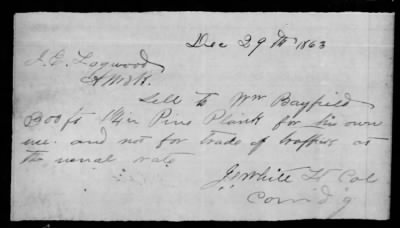 Dec 29th 1863
J. E. Logwood
Sell to Wm Bayfield
300 ft 1 1/4 in Pine Plank for his own
use. and not for trade of traffic at
the usual rate
J. J. White Lt Col
Comd'g